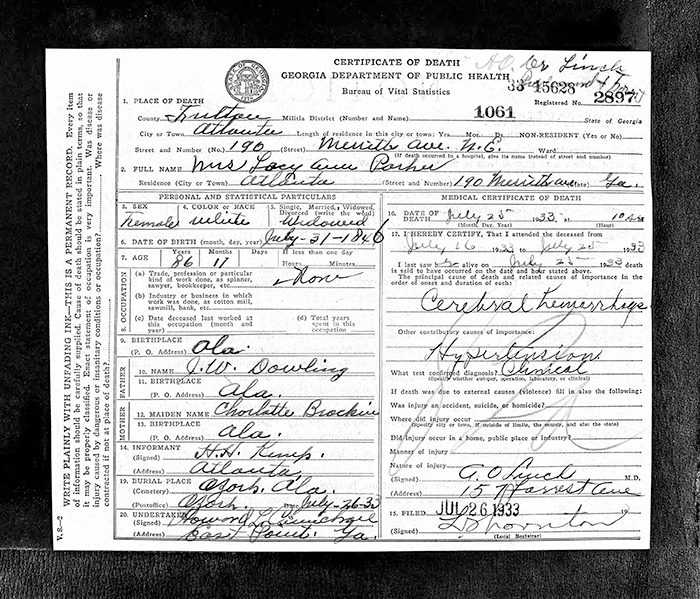 CERTIFICATE OF DEATH
GEORGIA DEPARTMENT OF PUBLIC HEALTH
Bureau of Vital Statistics
33 15628
Registered No. 2897
1. PLACE OF DEATH
County Fulton Militia District (Number and Name) 1061 State of Georgia
City or Town Atlanta Length of residence in this city or town: Yrs. Mos. Ds. NON-RESIDENT (Yes or No)
Street and Number (No.) 190 Merritts Ave. N.E. Ward
(If death occurred in a hospital, give its name instead of street and number)
2. FULL NAME Mrs Lacy Ann Parker
Residence (City or Town) Atlanta (Street and Number) 190 Merritts ave State Ga.
PERSONAL AND STATISTICAL PARTICULARS
3. SEX Female
4. COLOR or RACE white
5. Single, Married, Widowed, Divorced (write the word) Widowed
6. DATE OF BIRTH (month, day, year) July-31-1846
7. AGE Years 86 Months 11 Days If less than one day Hours Minutes
8. OCCUPATION
(a) Trade, profession or particular kind of work done, as spinner, sawyer, bookkeeper, etc. None
(b) Industry or business in which work was done, as cotton mill, sawmill, bank, etc.
(c) Date deceased last worked at this occupation (month and year)
(d) Total years spent in this occupation
9. BIRTHPLACE (P. O. Address) Ala.
FATHER
10. NAME J.W. Dowling
11. BIRTHPLACE (P. O. Address) Ala.
MOTHER
12. MAIDEN NAME Charlotte
13. BIRTHPLACE (P. O. Address) Ala.
14. INFORMANT (Signed) H.H. Kemp.
(Address) Atlanta
19. BURIAL PLACE (Cemetery) Ozark, Ala.
(Postoffice) Ozark. Date July-26-33
20. UNDERTAKER (Signed) Howard L. Carmichael
(Address) East Point. Ga.
MEDICAL CERTIFICATE OF DEATH
16. DATE OF DEATH July 25 1933, at 10
(Month, Day, Year) (Hour)
17. I HEREBY CERTIFY, That I attended the deceased from
July 16 1933 to July 25 1933
I last saw alive on July 25 1933 death
is said to have occurred on the date and hour stated above.
The principal cause of death and related causes of importance in the order of onset and duration of each:
Cerebral Hemorrhage
Other contributory causes of importance:
Hypertension
What test confirmed diagnosis? Clinical
(Specify whether autopsy, operation, laboratory, or clinical)
If death was due to external causes (violence) fill in also the following:
Was injury an accident, suicide, or homicide?
Where did injury occur
(Specify city or town, if outside of limits, the county, and also the state)
Did injury occur in a home, public place or industry?
Manner of injury
Nature of injury
(Signed) A. O. Lynch M.D.
(Address)
15. FILED JUL 26 1933 19
(Signed)
(Local Registrar)
WRITE PLAINLY WITH UNFADING INK—THIS IS A PERMANENT RECORD. Every item
of information should be carefully supplied. Cause of death should be stated in plain terms, so that
it may be properly classified. Exact statement of occupation is very important. Was disease or
injury caused by dangerous or insanitary conditions or occupation? Where was disease
contracted if not at place of death?
V. S.—2